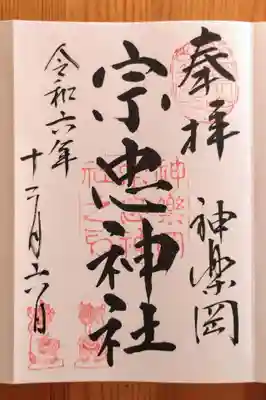 奉拝
神楽岡
宗忠神社
令和六年
十二月十六日